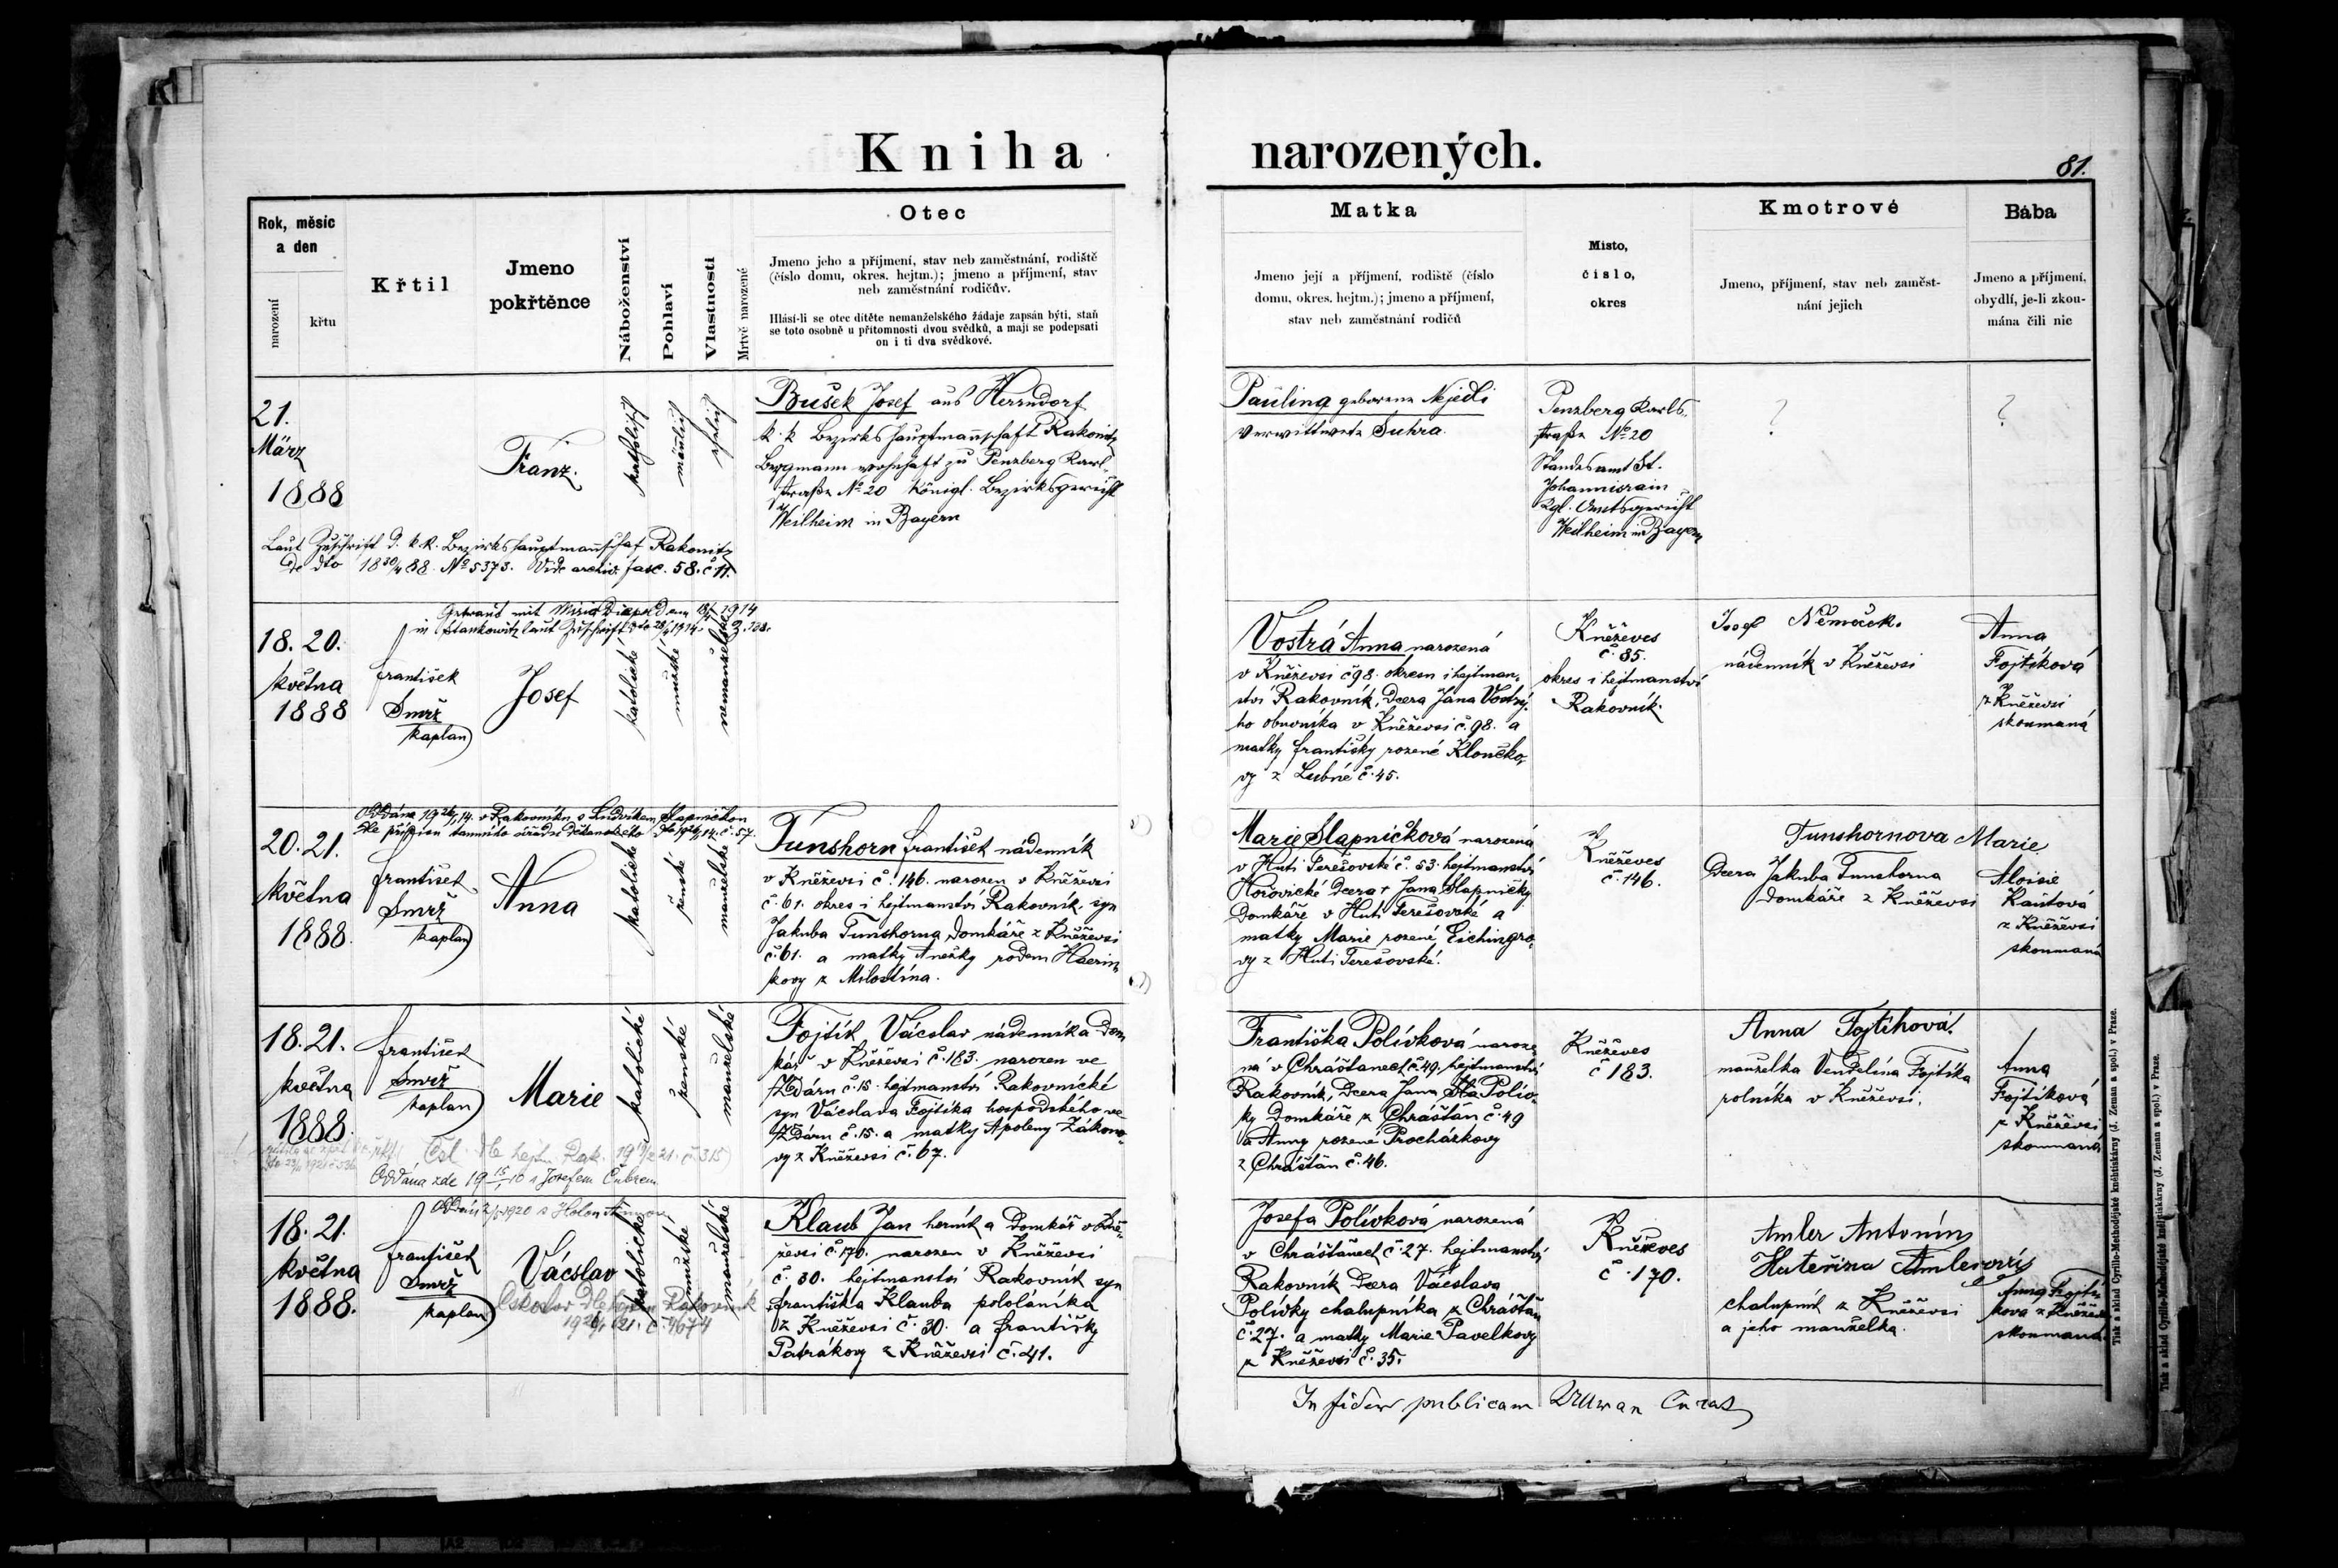 Kniha narozených.
81.
Rok, měsíc
a den
narození
křtu
Křtil
Jmeno
pokřtěnce
Náboženství
Pohlaví
Vlastnosti
Mrtvě narozené
Otec
Jmeno jeho a příjmení, stav neb zaměstnání, rodiště
(číslo domu, okres. hejtm.); jmeno a příjmení, stav
neb zaměstnání rodičův.
Hlásí-li se otec dítěte nemanželského žádaje zapsán býti, staň
se toto osobně u přítomnosti dvou svědků, a mají se podepsati
on i ti dva svědkové.
Matka
Jmeno její a příjmení, rodiště (číslo
domu, okres. hejtm.); jmeno a příjmení,
stav neb zaměstnání rodičů
Místo,
číslo,
okres
Kmotrové
Jmeno, příjmení, stav neb zaměst-
nání jejich
Bába
Jmeno a příjmení,
obydlí, je-li zkou-
mána čili nic
21.
März
1888
Franz.
katholisch
männlich
ehelich
Bušek Josef aus Herrndorf
k. k Bezirkshauptmannschaft Rakonitz
Bergmann wohnhaft zu Penzberg Karl-
straße No 20 Königl. Bezirksgericht
Weilheim in Bayern
Pauling geborene Nejedli
verwittwete Suhra.
Penzberg Karls-
straße No 20
Standesamt St.
Johannisrain
Kgl. Amtsgericht
Weilheim in Bayern
?
?
Laut Zuschrift d. k. k. Bezirkshauptmannschaf Rakonitz
de dto 18 30/4 88. No 5373. Vide archiv. fasc. 58. č 11.
Getraut mit Marie 1914
in Stankowitz laut Zuschrift
18. 20.
května
1888
František
Smrž
kaplan
Josef
katolické
mužské
nemanželské
Vostrá Anna narozená
v Kněževsi č 98. okresu i hejtman-
ství Rakovník, dcera Jána Vostrý-
ho obuvníka v Kněževsi č. 98. a
matky Františky rozené Kloučko-
vy z Lubné č. 45.
Kněževes
č. 85.
okres i hejtmanství
Rakovník.
Josef Němeček.
nádenník v Kněževsi
Anna
Fojtíková
z Kněževsi
skoumaná
Oddána v Rakovníku s Ludvíkem Slapničkou
dle přípisu tamního úřadu děkanského č. 57.
20. 21.
května
1888.
František
Smrž
kaplan
Anna
katolické
ženské
manželské
Tunshorn František nádenník
v Kněževsi č. 146. narozen v Kněževsi
č. 61. okres i hejtmanství Rakovník. syn
Jakuba Tunshorna, domkáře z Kněževsi
č. 61. a matky Anežky rodem
kovy z Milostína.
Marie Slapničková narozená
v Huti Terešovské č. 53. hejtmanství
Hořovické dcera † Jana Slapničky
domkáře v Huti Terešovské a
matky Marie rozené Eichingro-
vy z Huti Terešovské.
Kněževes
č. 146.
Tunshornova Marie
dcera Jakuba Tunshorna
domkáře z Kněževsi
Aloisie
Kautová
z Kněževsi
skoumaná
18. 21.
května
1888.
František
Smrž
kaplan
Marie
katolické
ženské
manželské
Fojtík Václav nádenník a dom-
kář v Kněževsi č. 183. narozen ve
Ždáru č. 15. hejtmanství Rakovnické
syn Václava Fojtíka hospodského ve
Ždáru č. 15. a matky Apoleny Zákono-
vy z Kněževsi č. 67.
Františka Polívková naroze-
ná v Chrášťanech č. 49, hejtmanství
Rakovník, dcera Jana Polív-
ky domkáře z Chrášťan č. 49
a Anny rozené Procházkovy
z Chrášťan č. 46.
Kněževes
č 183.
Anna Fojtíková.
manželka Vendelína Fojtíka
rolníka v Kněževsi.
Anna
Fojtíková
z Kněževsi
skoumaná
Čsl. dle hejtm. Rak. č. 315
Oddána zde 19 15/1 10 s Josefem
Oddán 1920 s
18. 21.
května
1888.
František
Smrž
kaplan
Václav
katolické
mužské
manželské
Klaub Jan horník a domkář v Kně-
ževsi č. 170. narozen v Kněževsi
č. 30. hejtmanství Rakovník syn
Františka Klauba pololáníka
z Kněževsi č. 30. a Františky
Patrákovy z Kněževsi č. 41.
Josefa Polívková narozená
v Chrášťanech č. 27. hejtmanství
Rakovník dcera Václava
Polívky chalupníka z Chrášťan
č. 27. a matky Marie Pavelkovy
z Kněževsi č. 35.
Kněževes
č. 170.
Amler Antonín
Kateřina Amlerová
chalupník z Kněževsi
a jeho manželka.
Anna Fojtí-
kova z Kněževsi
skoumaná.
dle hejtm Rakovník
č. 4674
In fidem publicam
Tisk a sklad Cyrillo-Methodějské knihtiskárny (J. Zeman a spol.) v Praze.
Tisk a sklad Cyrillo-Methodějské knihtiskárny (J. Zeman a spol.) v Praze.